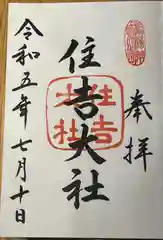 奉拝
住吉大社
住吉大社
令和五年七月十日